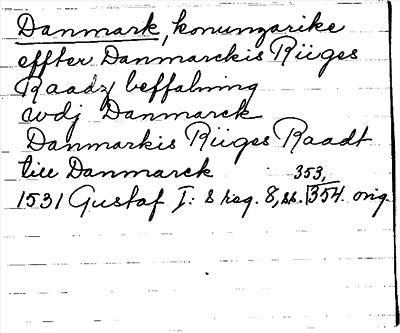 Danmark, konungarike
effter Danmarckis Riiges
Raadz beffalning
wdj Danmarck
Danmarkis Riiges Raadt
till Danmarck 353,
1531 Gustaf I: s reg. 8, ss. 354. orig.